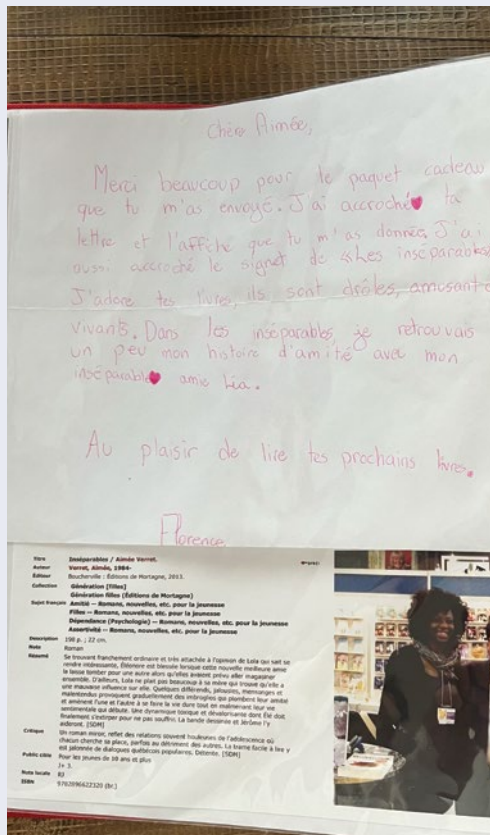 Chère Aimée,
Merci beaucoup pour le paquet cadeau
que tu m'as envoyé. J'ai accroché ta
lettre et l'affiche que tu m'as donnée. J'ai
aussi accroché le signet de Les inséparables.
J'adore tes livres, ils sont drôles, amusants
vivants. Dans les inséparables, je retrouvais
un peu mon histoire d'amitié avec mon
inséparable amie Lia.
Au plaisir de lire tes prochains livres.
Florence
Titre Inséparables / Aimée Verret.
Auteur Verret, Aimée, 1984-
Éditeur Boucherville : Éditions de Mortagne, 2013.
Collection Génération (filles)
Génération filles (Éditions de Mortagne)
Sujet français Amitié -- Romans, nouvelles, etc. pour la jeunesse
Filles -- Romans, nouvelles, etc. pour la jeunesse
Dépendance (Psychologie) -- Romans, nouvelles, etc. pour la jeunesse
Assertivité -- Romans, nouvelles, etc. pour la jeunesse
Description 198 p. ; 22 cm.
Note Roman
Résumé Se trouvant franchement ordinaire et très attachée à l'opinion de Lola qui sait se
rendre intéressante, Éléonore est blessée lorsque cette nouvelle meilleure amie
la laisse tomber pour une autre alors qu'elles avaient prévu aller magasiner
ensemble. D'ailleurs, Lola ne plait pas beaucoup à sa mère qui trouve qu'elle a
une mauvaise influence sur elle. Quelques différends, jalousies, mensonges et
malentendus provoquent graduellement des imbroglios qui plombent leur amitié
et amènent l'une et l'autre à se faire la vie dure tout en maintenant leur vie
sentimentale qui débute. Une dynamique toxique et dévalorisante dont Élé doit
finalement s'extirper pour ne pas souffrir. La bande dessinée et Jérôme l'y
aideront. [SDM]
Critique Un roman miroir, reflet des relations souvent houleuses de l'adolescence où
chacun cherche sa place, parfois au détriment des autres. La trame facile à lire y
est jalonnée de dialogues québécois populaires. Détente. [SDM]
Public cible Pour les jeunes de 10 ans et plus
J+ 3.
Note locale RJ
ISBN 9782896622320 (br.)